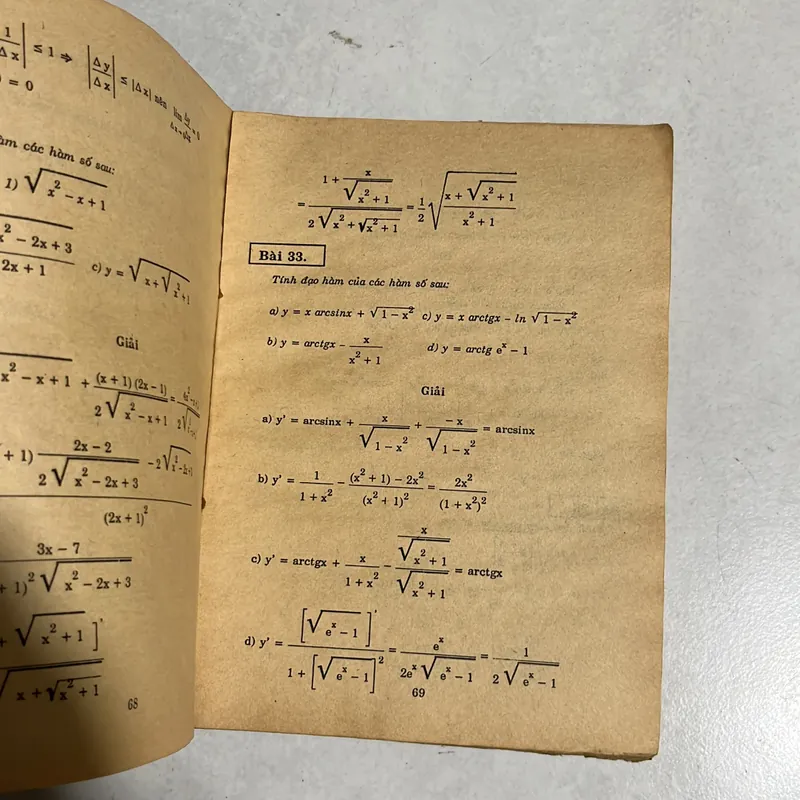 | 1/Δx | ≤ 1 ⇒ | Δy/Δx | ≤ |Δx| nên lim Δy/Δx = 0
) = 0
àm các hàm số sau:
1) √(x² – x + 1)
x² – 2x + 3
2x + 1
c) y = √(x + √(x² + 1))
Giải
x² – x + 1 + (x + 1)(2x – 1) / 2√(x² – x + 1) =
+ 1) (2x – 2) / 2√(x² – 2x + 3) – 2√(x² – 2x + 3)
(2x + 1)²
3x – 7
+ 1)² √(x² – 2x + 3)
+ √(x² + 1) ]'
√(x + √(x² + 1))
68
= (1 + x/√(x² + 1)) / 2√(x² + √(x² + 1)) = 1/2 √((x + √(x² + 1)) / (x² + 1))
Bài 33.
Tính đạo hàm của các hàm số sau:
a) y = x arcsinx + √(1 – x²) c) y = x arctgx – ln √(1 – x²)
b) y = arctgx – x/(x² + 1) d) y = arctg eˣ – 1
Giải
a) y' = arcsinx + x/√(1 – x²) + –x/√(1 – x²) = arcsinx
b) y' = 1/(1 + x²) – ((x² + 1) – 2x²)/(x² + 1)² = 2x²/(1 + x²)²
c) y' = arctgx + x/(1 + x²) – (x/√(x² + 1))/√(x² + 1) = arctgx
d) y' = [√(eˣ – 1)]' / (1 + [√(eˣ – 1)]²) = eˣ/(2eˣ √(eˣ – 1)) = 1/(2√(eˣ – 1))
69